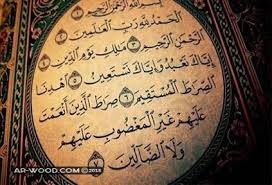 بِسْمِ ٱللَّهِ ٱلرَّحْمَٰنِ ٱلرَّحِيمِ ۝١
ٱلْحَمْدُ لِلَّهِ رَبِّ ٱلْعَٰلَمِينَ ۝٢
ٱلرَّحْمَٰنِ ٱلرَّحِيمِ ۝٣ مَٰلِكِ يَوْمِ ٱلدِّينِ ۝٤
إِيَّاكَ نَعْبُدُ وَإِيَّاكَ نَسْتَعِينُ ۝٥ ٱهْدِنَا
ٱلصِّرَٰطَ ٱلْمُسْتَقِيمَ ۝٦ صِرَٰطَ ٱلَّذِينَ أَنْعَمْتَ
عَلَيْهِمْ غَيْرِ ٱلْمَغْضُوبِ عَلَيْهِمْ
وَلَا ٱلضَّآلِّينَ ۝٧
AR-WOOD.COM©2018